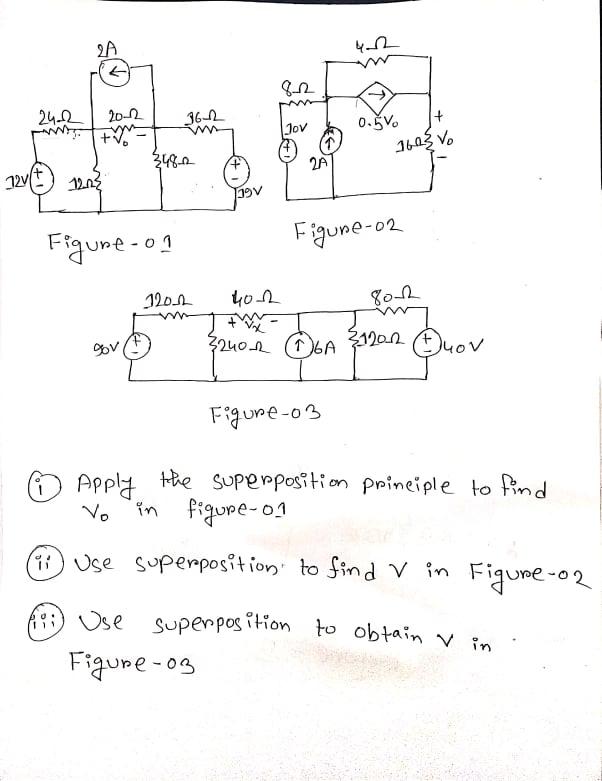 2A
24Ω 20Ω 36Ω
+ V₀ -
48Ω
12V + - 12Ω + - 19V
Figure-01
4Ω
8Ω
10V + - 2A 0.5V₀ 16Ω + V₀ -
Figure-02
120Ω 40Ω 80Ω
+ Vx -
90V + - 240Ω 6A 120Ω + - 40V
Figure-03
(i) Apply the superposition principle to find
V₀ in figure-01
(ii) Use superposition to find V in Figure-02
(iii) Use superposition to obtain V in
Figure-03